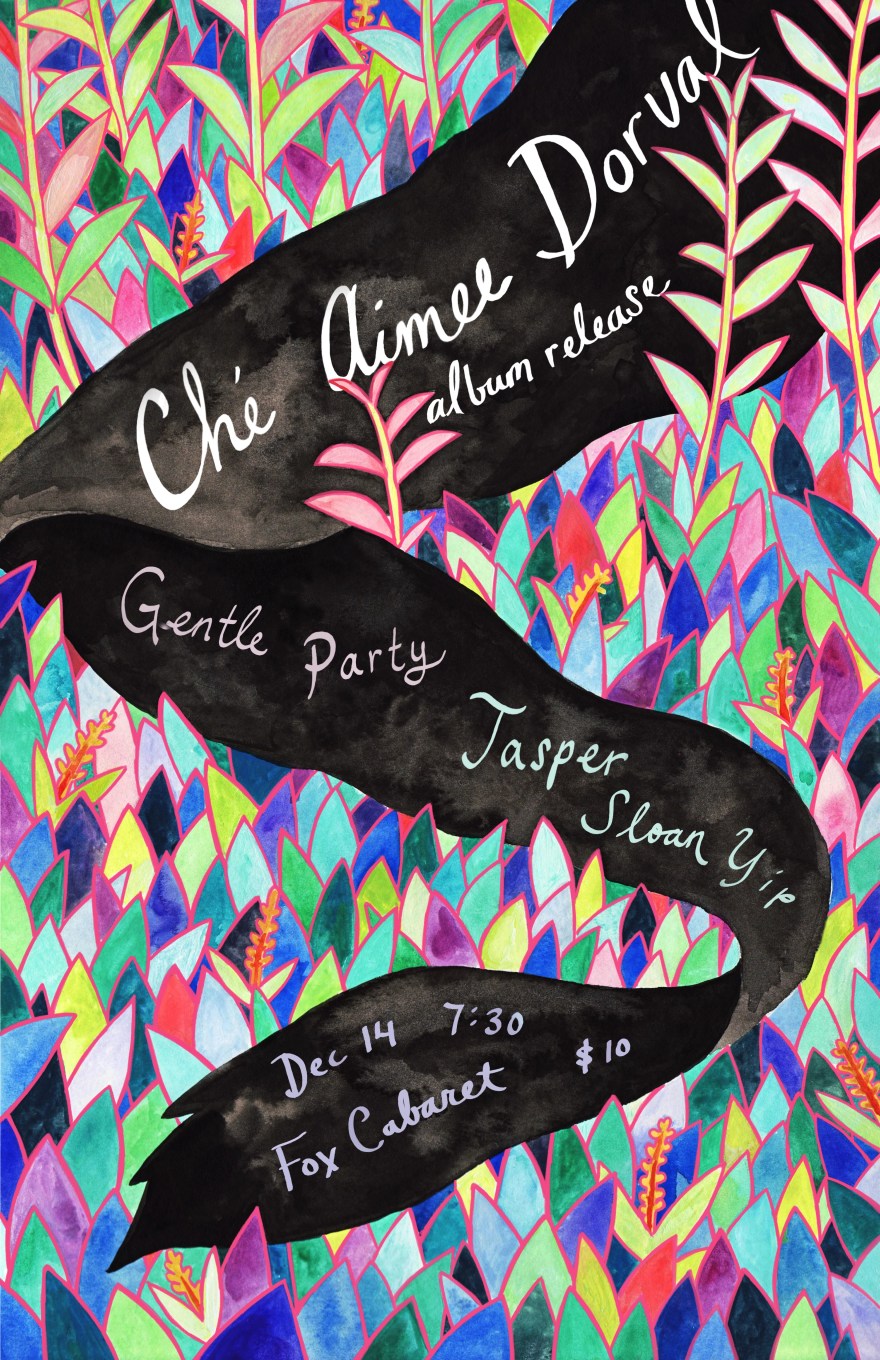 Ché Aimee Dorval
album release
Gentle Party
Jasper
Sloan Yip
Dec 14 7:30
Fox Cabaret $10